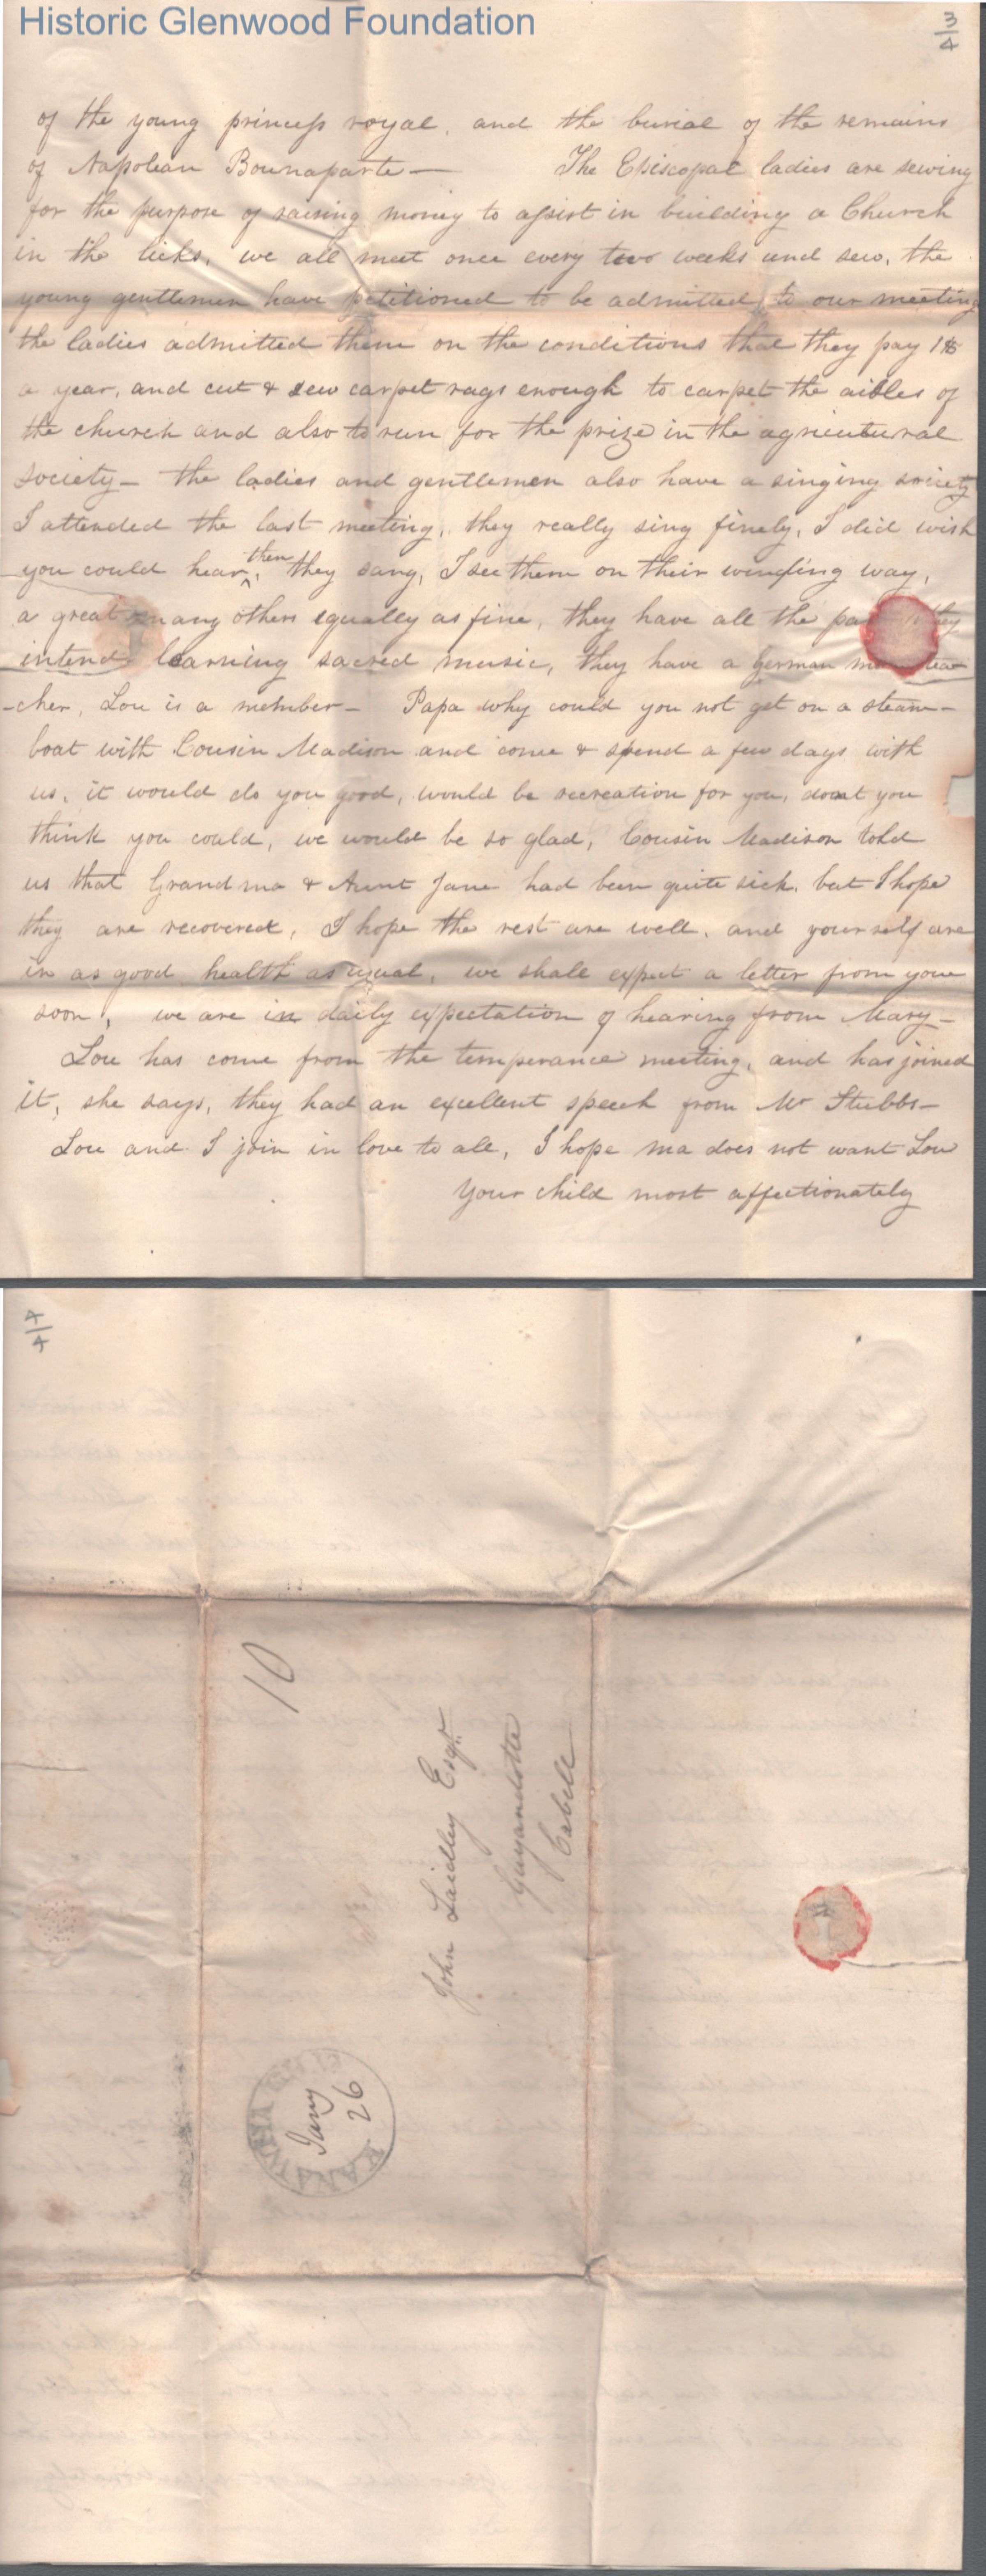 Historic Glenwood Foundation
3/4
of the young princess royal, and the burial of the remains
of Napolean Bounaparte— The Episcopal ladies are sewing
for the purpose of raising money to assist in building a Church
in the licks, we all meet once every two weeks and sew, the
young gentlemen have petitioned to be admitted to our meeting
the ladies admitted them on the conditions that they pay 1$
a year, and cut & sew carpet rags enough to carpet the aibles of
the church and also to run for the prize in the agricutural
society— the ladies and gentlemen also have a singing society
I attended the last meeting, they really sing finely, I did wish
you could hear then, they sang, I see them on their winding way,
a great many others equally as fine, they have all the they
intend learning sacred music, they have a German tea
-cher, Lou is a member— Papa why could you not get on a steam-
boat with Cousin Madison and come & spend a few days with
us, it would do you good, would be recreation for you, dont you
think you could, we would be so glad, Cousin Madison told
us that Grand ma & Aunt Jane had been quite sick, but I hope
they are recovered, I hope the rest are well, and yourself are
in as good health as usual, we shall expect a letter from you
soon, we are in daily expectation of hearing from Mary—
Lou has come from the temperance meeting, and has joined
it, she says, they had an excellent speech from Mr Stubbs—
Lou and I join in love to all, I hope ma does not want Lou
Your child most affectionately
4/4
10
John Laidley Esqr.
Guyandotte
Cabell
KANAWHA
Jany
26